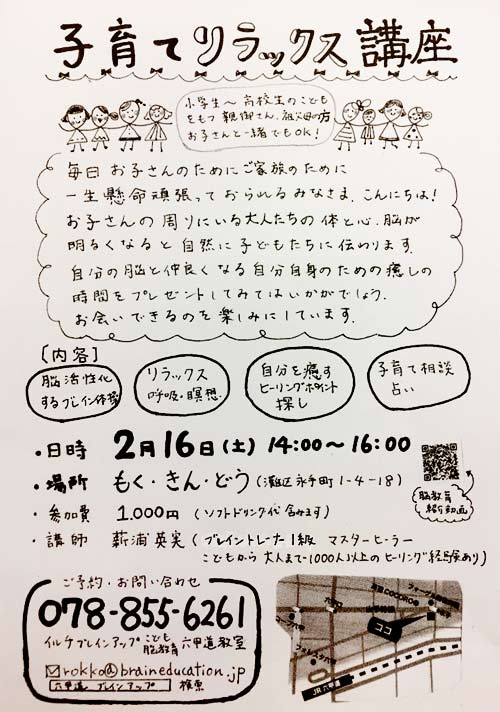 子育てリラックス講座
小学生〜高校生のこども
をもつ親御さん、祖父母の方
お子さんと一緒でもOK!
毎日 お子さんのためにご家族のために
一生懸命頑張っておられるみなさま、こんにちは!
お子さんの周りにいる大人たちの体と心、脳が
明るくなると自然に子どもたちに伝わります.
自分の脳と仲良くなる自分自身のための癒しの
時間をプレゼントしてみてはいかがでしょう.
お会いできるのを楽しみにしています.
[内容]
脳活性化
するブレイン体操
リラックス
呼吸・瞑想.
自分を癒す
ヒーリングポイント
探し
子育て相談
占い
・日時 2月16日(土) 14:00〜16:00
・場所 もく・きん・どう (灘区永手町1-4-18)
・参加費 1.000円 (ソフトドリンク代含みます)
・講師 薪浦英実 (ブレイントレーナー1級 マスターヒーラー
こどもから大人まで1000人以上のヒーリング経験あり)
脳教育
紹介動画
ご予約・お問い合わせ
078-855-6261
イルチブレインアップ こども脳教育 六甲道教室
rokko@braineducation.jp
六甲道 ブレインアップ 検索
六甲口
山手幹線
ココ
フォレスタ六甲
JR 六甲道